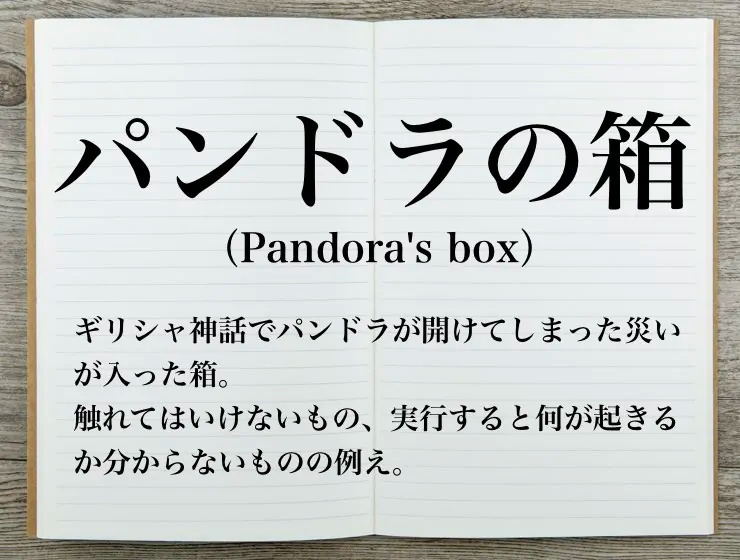 パンドラの箱
（Pandora's box）
ギリシャ神話でパンドラが開けてしまった災い
が入った箱。
触れてはいけないもの、実行すると何が起きる
か分からないものの例え。